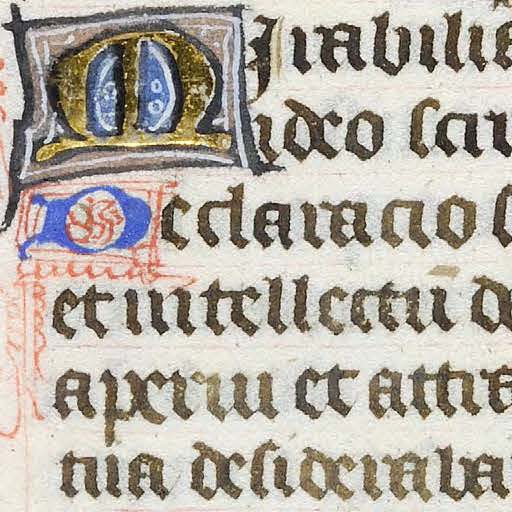 Mirabilia
ideo scru
Declaracio s
et intellectū da
aperui et attra
tua desideraba